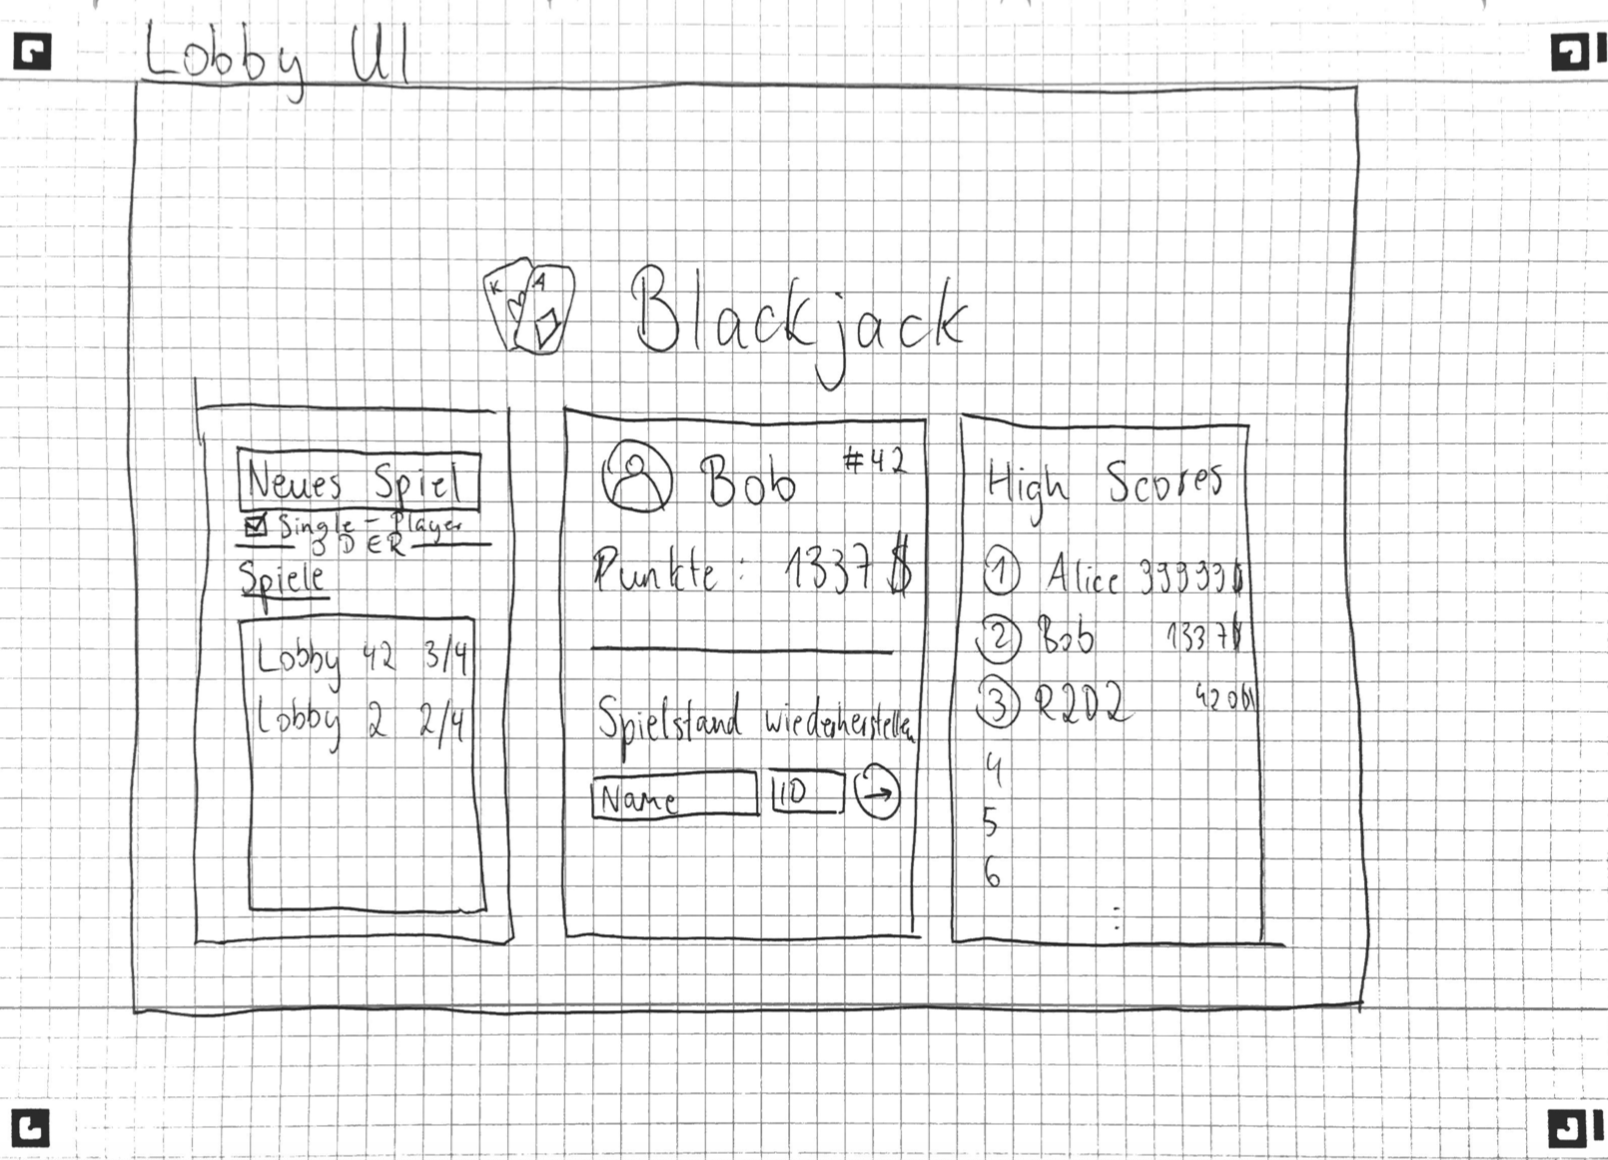 Lobby UI
K A
Blackjack
Neues Spiel
Single-Player
ODER
Spiele
Lobby 42 3/4
Lobby 2 2/4
Bob #42
Punkte: 1337 $
Spielstand wiederherstellen
Name ID →
High Scores
1 Alice 99999$
2 Bob 1337$
3 R2D2 420$
4
5
6
⋮